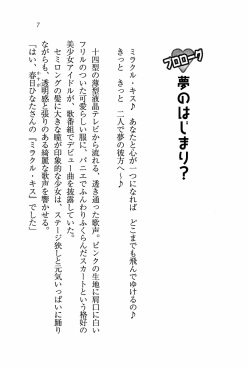 7
プロローグ
夢のはじまり？
ミラクル・キス♪　あなたと心が一つになれば　どこまでも飛んでゆけるの♪
きっと　きっと　二人で夢の彼方へ〜♪
十四型の薄型液晶テレビから流れる、透き通った歌声。ピンクの生地に肩口に白い
フリルのついた可愛らしい服に、パニエでふわりふくらんだスカートという格好の
美少女アイドルが、歌番組でデビュー曲を披露していた。
セミロングの髪に大きな瞳が印象的な少女は、ステージ狭しと元気いっぱいに踊り
ながらも、透明感と張りのある綺麗な歌声を響かせる。
「はい、春日ひなたさんの『ミラクル・キス』でした」